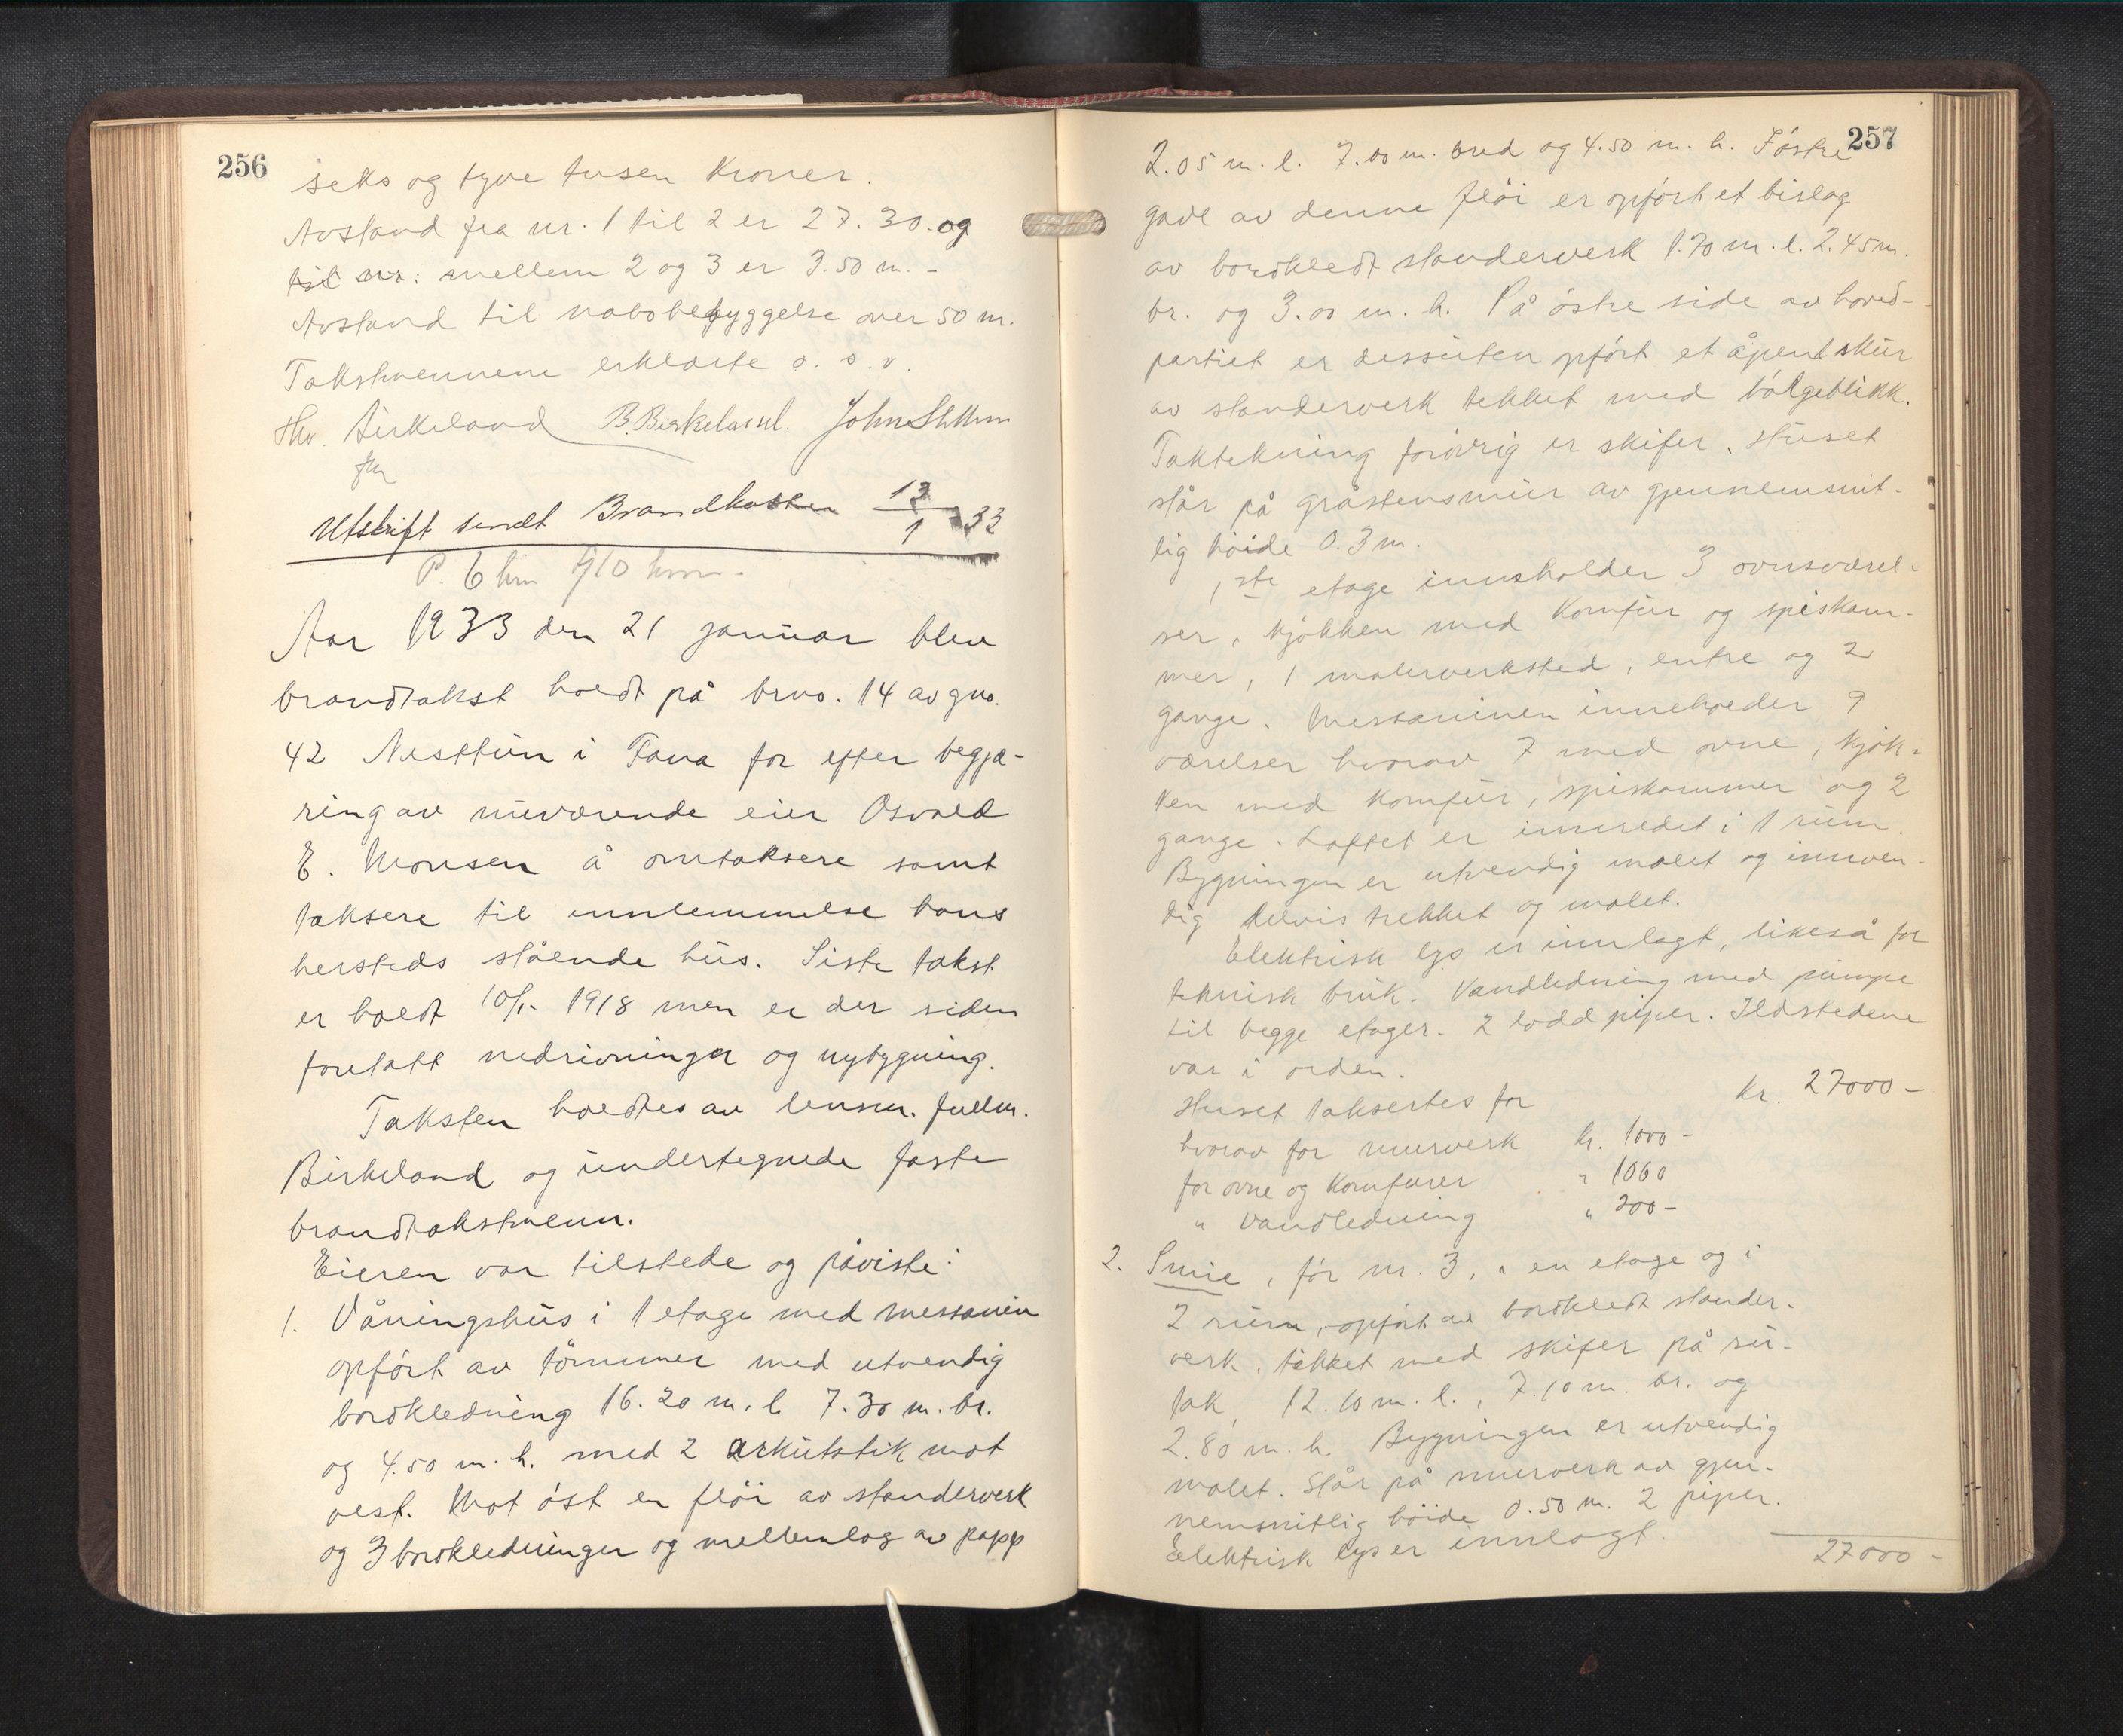 256
seks og tyve tusen Kroner.
Avstand fra nr. 1 til 2 er 27.30. og
til nr: mellem 2 og 3 er 3.50 m. -
Avstand til nabobebyggelse over 50 m.
Takstmennene erklærte o. s. v.
Birkeland B. Birkeland. John
Utskrift sendt Brandkassen 13/1 33
P. 6 km
Aar 1933 den 21 januar blev
brandtakst holdt på brno. 14 av gno.
42 Nesttun i Fana for efter begjæ-
ring av nuværende eier Osvald
E. Monsen å omtaksere samt
taksere til innlemmelse hans
hersteds stående hus. Siste takst
er holdt 10/5 1918 men er der siden
foretatt nedrivninger og nybygning.
Taksten holdtes av lensm. fullm.
Birkeland og undertegnede faste
brandtakstmenn.
Eieren var tilstede og påviste:
1. Våningshus i 1 etage med messanin
opført av tømmer med utvendig
bordkledning 16.20 m. l. 7.30 m. br.
og 4.50 m. h. med 2 arkutstik mot
vest. Mot øst en fløi av standerverk
og 3 bordkledninger og mellemlag av papp
257
2.05 m. l. 7.00 m. bred og 4.50 m. h. I østre
gavl av denne fløi er opført et bislag
av bordkledt standerverk 1.70 m. l. 2.45 m.
br. og 3.00 m. h. På østre side av hoved-
partiet er dessuten opført et åpent skur
av standerverk tekket med bølgeblikk.
Taktekning forøvrig er skifer. Huset
står på gråstensmur av gjennemsnit-
lig høide 0.3 m.
1ste etage innsholder 3 ovnsværel-
ser, kjøkken med Komfur og spiskam-
mer, 1 malerverksted, entre og 2
gange. Messaninen inneholder 9
værelser hvorav 7 med ovne, kjøk-
ken med komfur, spiskammer og 2
gange. Loftet er innredet i 1 rum.
Bygningen er utvendig malet og innven-
dig delvis trekket og malet.
Elektrisk lys er innlagt, likeså for
teknisk bruk. Vandledning med pumpe
til begge etager. 2 lodd piper. Ildstedene
var i orden.
Huset taksertes for kr. 27000 -
hvorav for murverk kr. 1000 -
for ovne og Komfurer " 1060
" vandledning " 200 -
2. Smie, før nr. 3, " en etage og i
2 rum, opført av bordkledt stander-
verk, tekket med skifer på su-
tak, 12.10 m. l., 7.10 m. br. og
2.80 m. h. Bygningen er utvendig
malet. Står på murverk av gjen-
nemsnitlig høide 0.50 m. 2 piper.
Elektrisk lys er innlagt.
27000 -